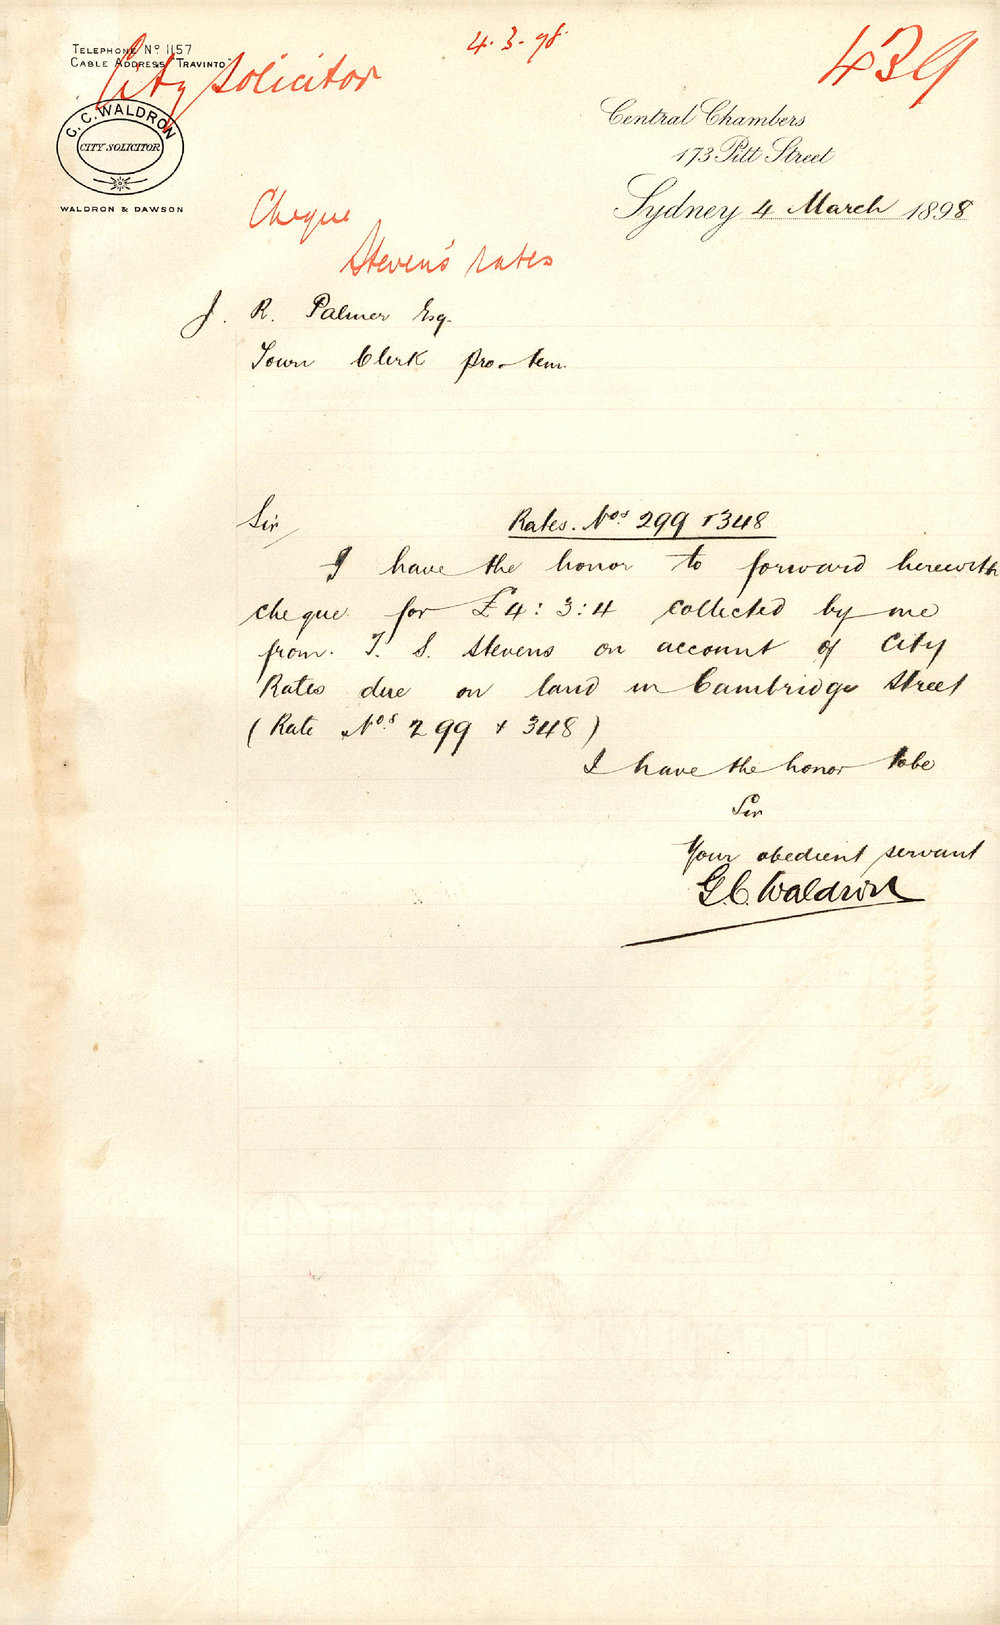 TELEPHONE No 1157
CABLE ADDRESS "TRAVINTO"
4.3.98.
439
City Solicitor
C. C. WALDRON
CITY SOLICITOR
WALDRON & DAWSON
Central Chambers
173 Pitt Street
Sydney 4 March 1898
Cheque
Steven's rates
J. R. Palmer Esq.
Town Clerk pro-tem.
Sir
Rates. Nos. 299 & 348
I have the honor to forward herewith
cheque for £4:3:4 collected by me
from T. S. Stevens on account of City
Rates due on land in Cambridge Street
(Rate Nos 299 & 348)
I have the honor to be
Sir
Your obedient servant
G. C. Waldron